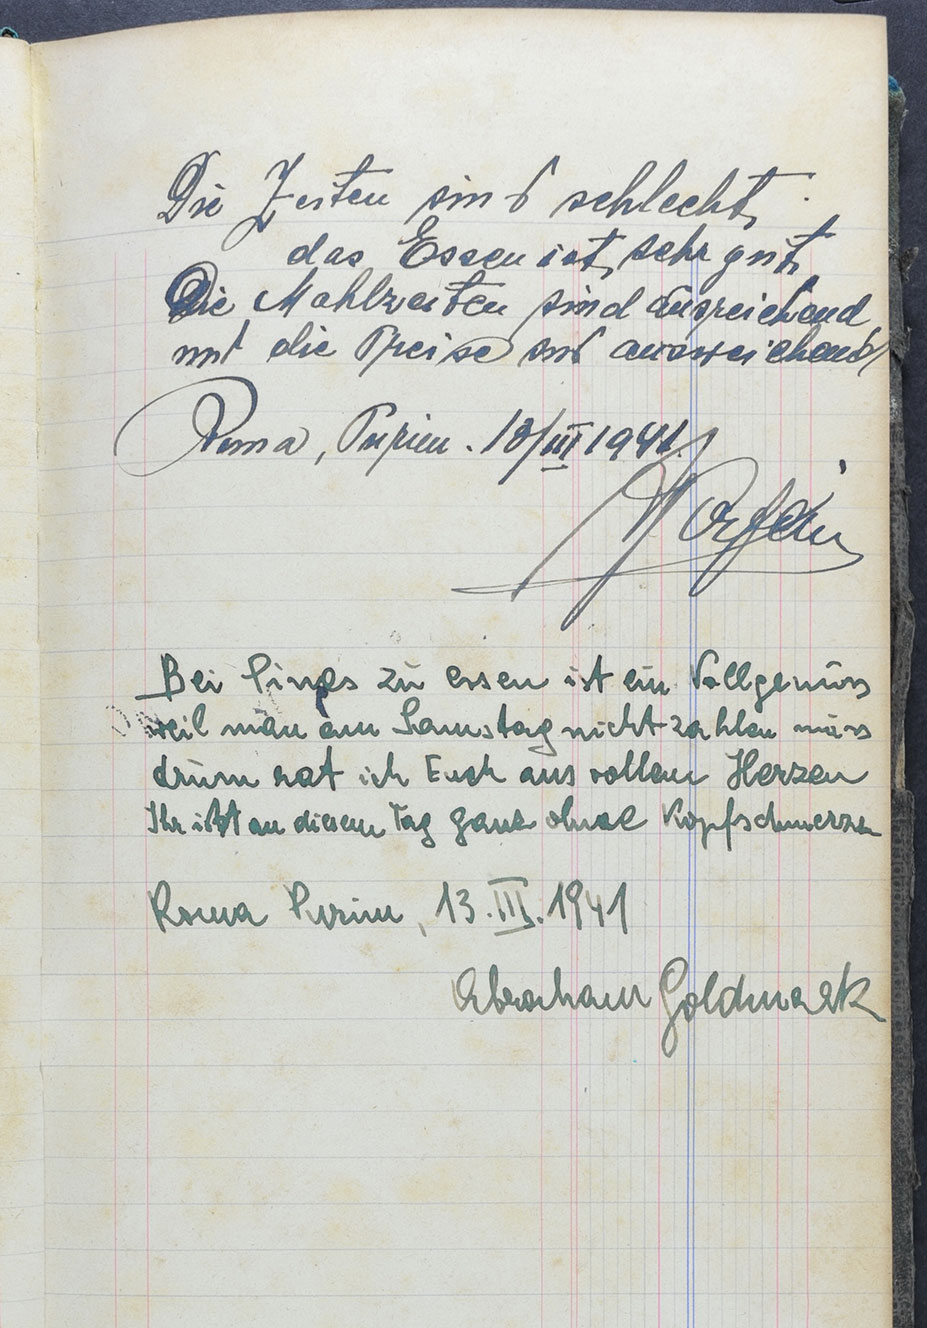 Die Zeiten sind schlecht,
das Essen ist sehr gut,
Die Mahlzeiten sind ausreichend
und die Preise sind ausweichend
Roma, Purim. 13/III 1941.
Bei Pines zu essen ist ein Vollgenuss
weil man am Samstag nicht zahlen muss
drum rat ich Euch aus vollem Herzen
Ihr isst an diesem Tag ganz ohne Kopfschmerzen
Roma Purim, 13.III.1941
Abraham Goldmark